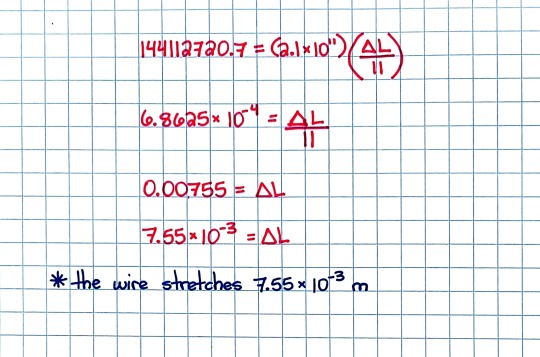 144112720.7 = (2.1×10¹¹)(ΔL/11)
6.8625×10⁻⁴ = ΔL/11
0.00755 = ΔL
7.55×10⁻³ = ΔL
* the wire stretches 7.55×10⁻³ m